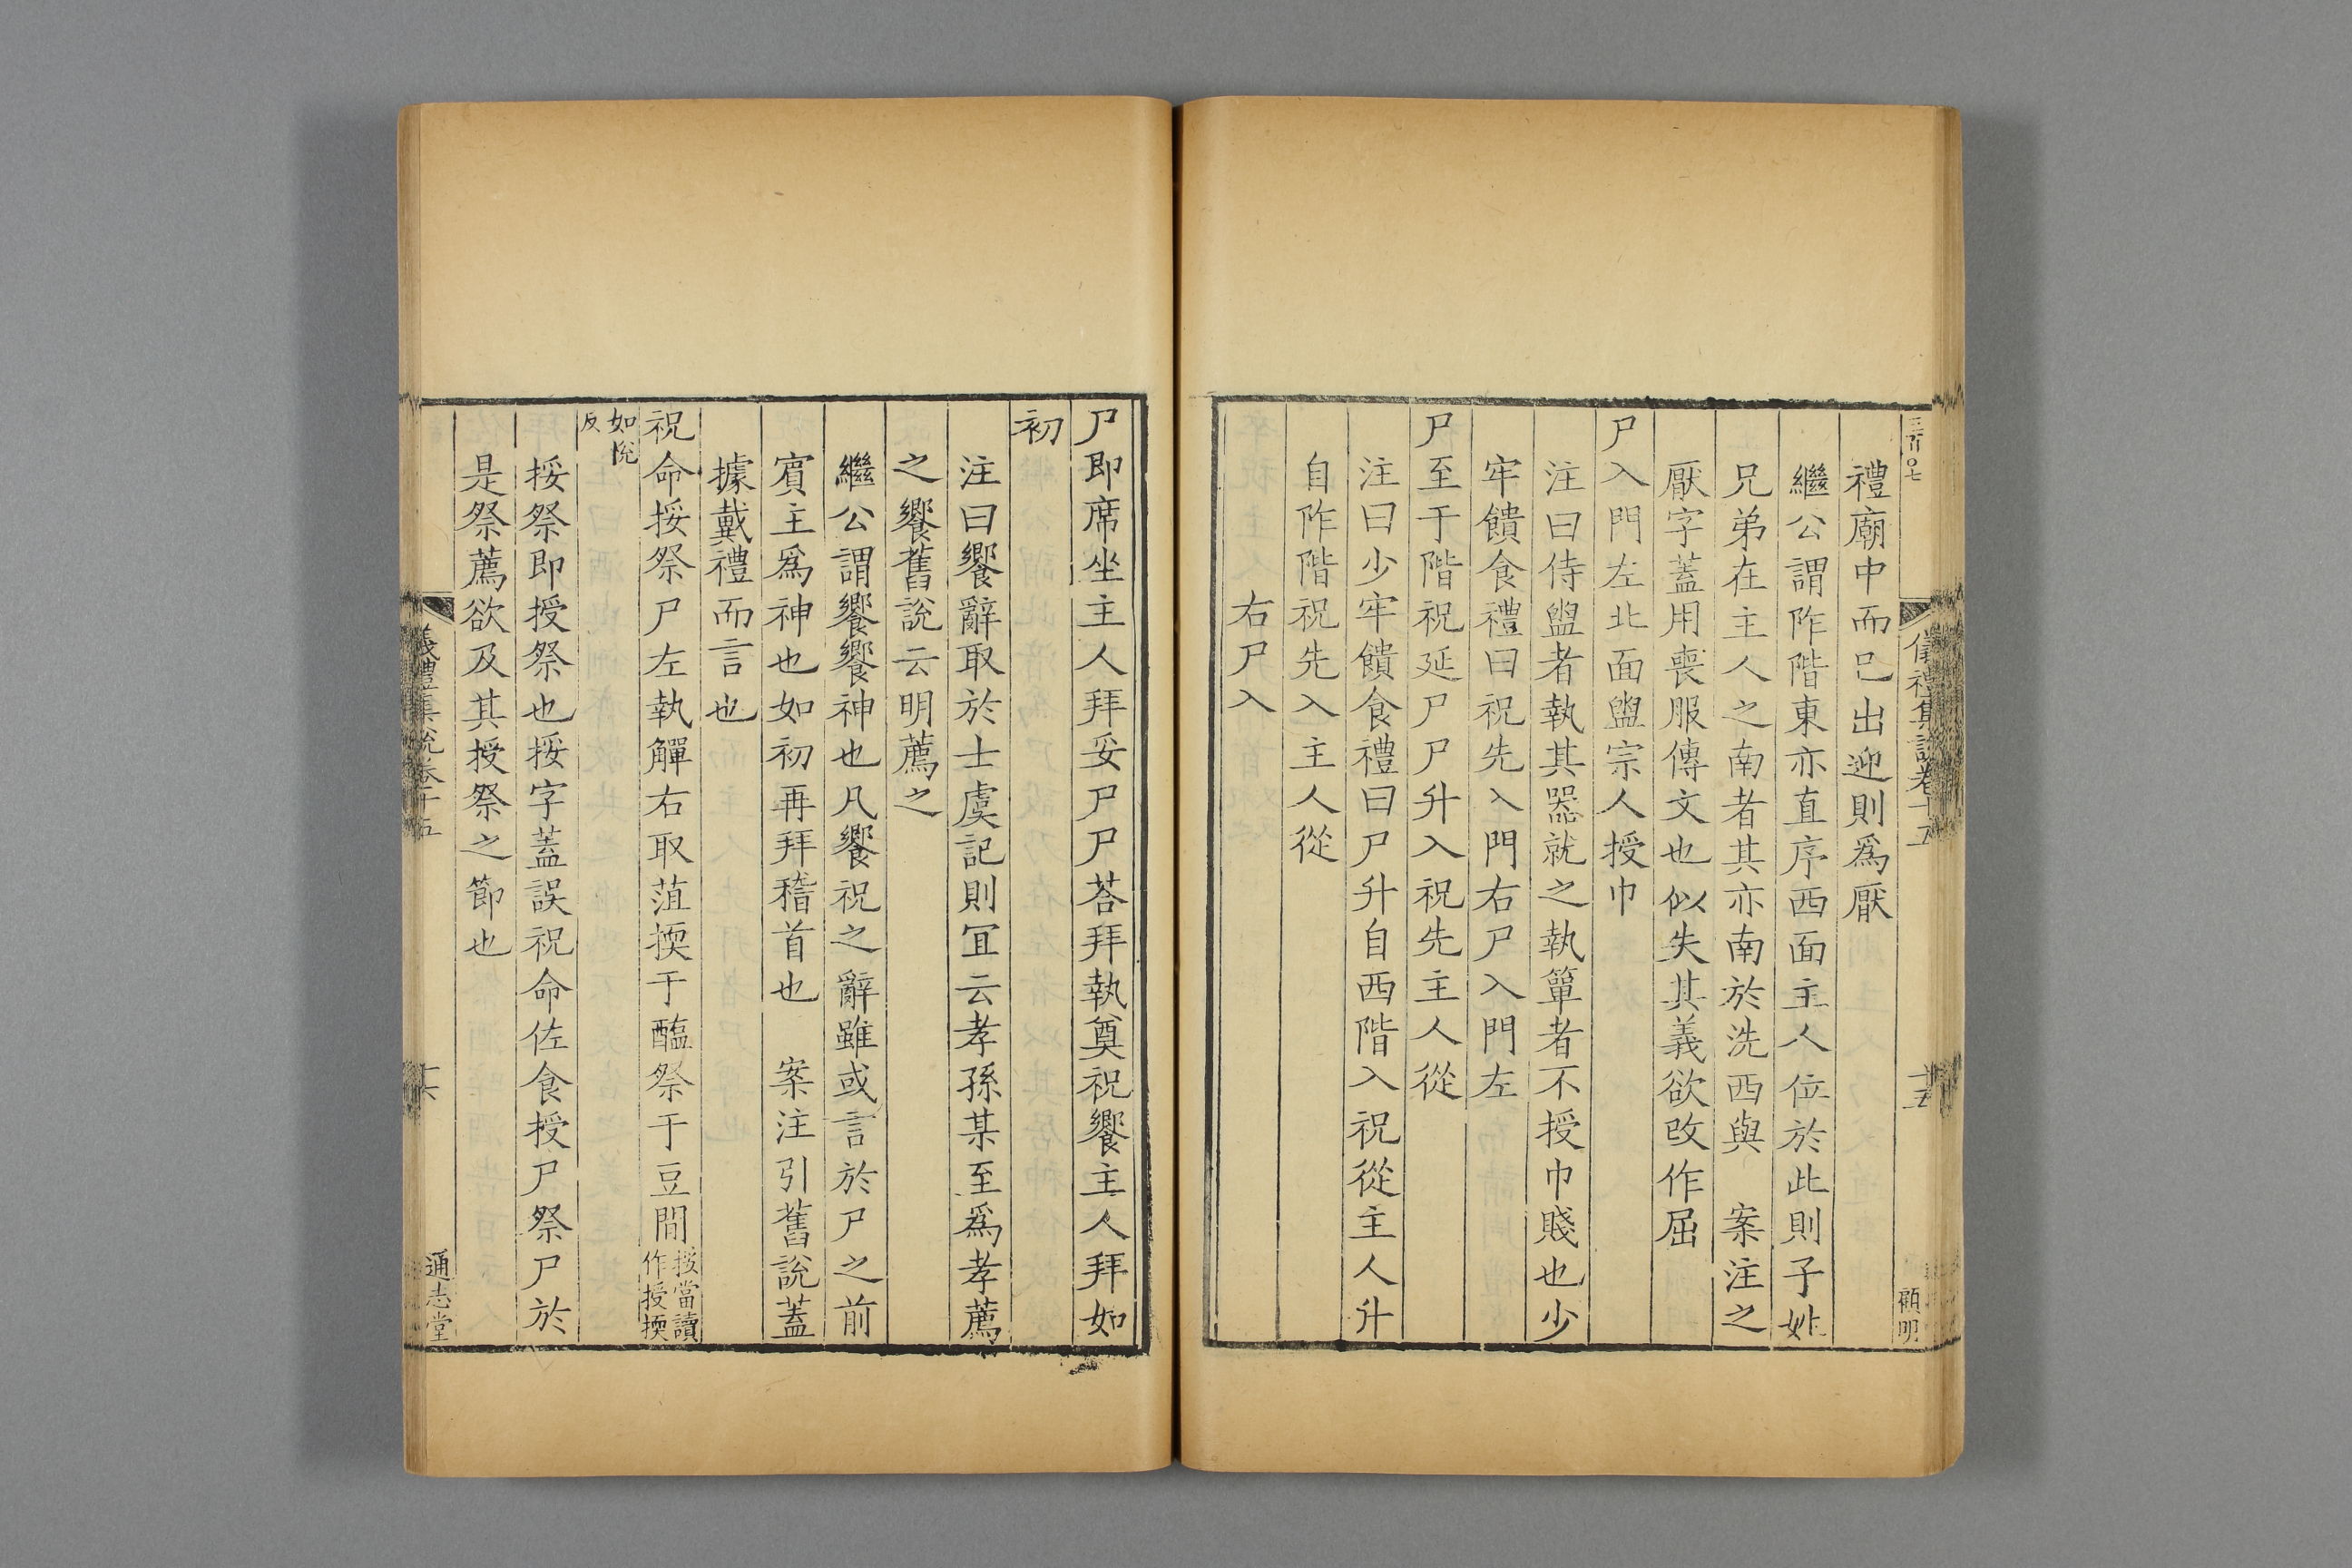 三百〇七
儀禮集說卷十五
十五
顧明
禮廟中而已出迎則爲厭
繼公謂阼階東亦直序西面主人位於此則子姓
兄弟在主人之南者其亦南於洗西與　案注之
厭字蓋用喪服傳文也似失其義欲改作屈
尸入門左北面盥宗人授巾
注曰侍盥者執其器就之執簞者不授巾賤也少
牢饋食禮曰祝先入門右尸入門左
尸至于階祝延尸尸升入祝先主人從
注曰少牢饋食禮曰尸升自西階入祝從主人升
自阼階祝先入主人從
右尸入
尸即席坐主人拜妥尸尸荅拜執奠祝饗主人拜如
初
注曰饗辭取於士虞記則冝云孝孫某至爲孝薦
之饗舊說云明薦之
繼公謂饗饗神也凡饗祝之辭雖或言於尸之前
賓主爲神也如初再拜稽首也　案注引舊說蓋
據戴禮而言也
祝命挼祭尸左執觶右取菹㨎于醢祭于豆閒挼當讀
作授㨎
如悅
反
挼祭即授祭也挼字蓋誤祝命佐食授尸祭尸於
是祭薦欲及其授祭之節也
儀禮集說卷十五
十六
通志堂